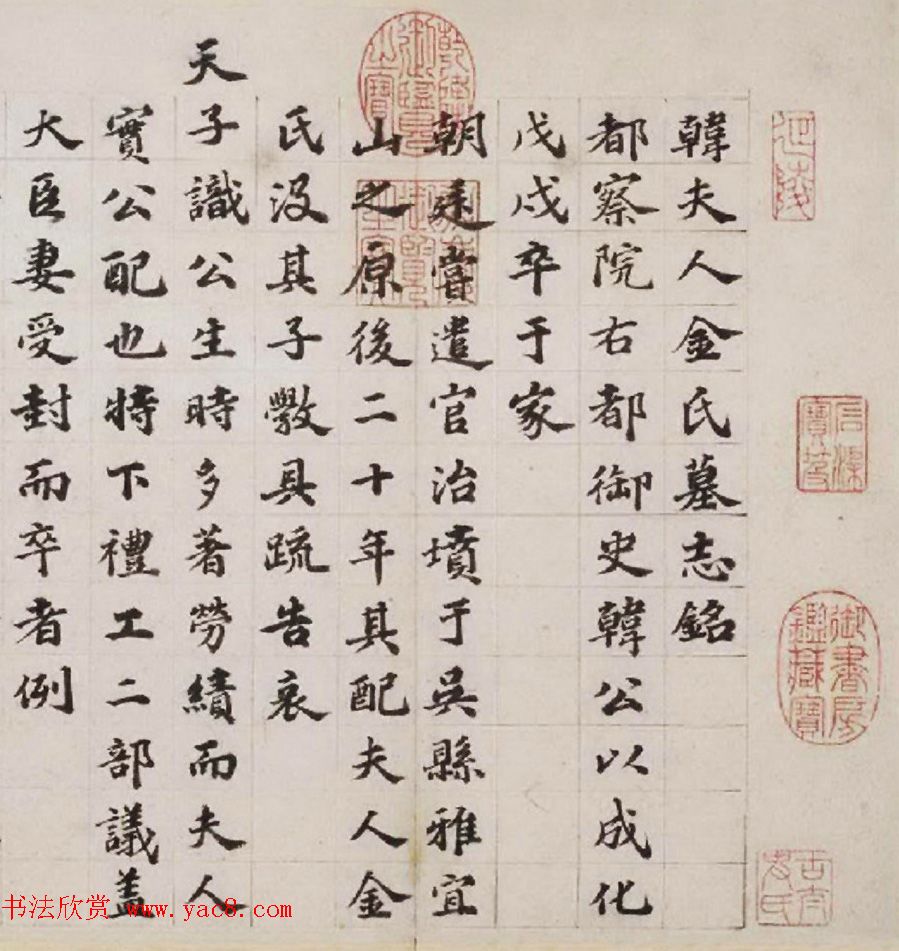 韓夫人金氏墓志銘
都察院右都御史韓公以成化
戊戌卒于家
朝廷嘗遣官治墳于吳縣雅宜
山之原後二十年其配夫人金
氏沒其子斅具疏告哀
天子識公生時多著勞績而夫人
實公配也特下禮工二部議盖
大臣妻受封而卒者例
乾隆御覽之寶
石渠寶笈
御書房鑑藏寶
书法欣赏 www.yac8.com